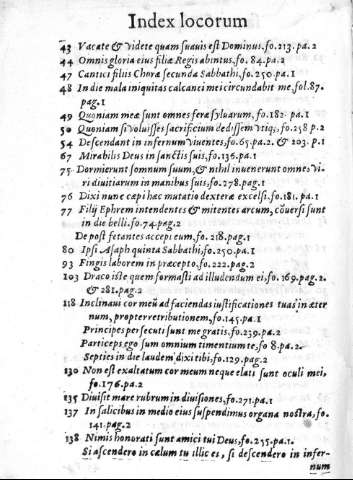 Index locorum
43 Vacate & videte quam suauis est Dominus.fo.213.pa.2
44 Omnis gloria eius filiæ Regis abintus, fo. 84.pa.2
47 Cantici filiis Chora secunda Sabbathi, fo.250.pa.1
48 In die mala iniquitas calcanei mei circundabit me, fol.87.
pag.1
49 Quoniam meæ sunt omnes feræ syluarum, fo.182. pa.1
50 Quoniam si voluisses sacrificium dedissem vtiq;, fo.258 p.2
54 Descendant in infernum viuentes, fo.65.pa.2. & 203. p.1
67 Mirabilis Deus in sanctis suis, fo.136.pa.1
75 Dormierunt somnum suum, & nihil inuenerunt omnes vi-
ri diuitiarum in manibus suis, fo.278.pag.1
76 Dixi nunc cæpi hæc mutatio dexteræ excelsi. fo.181. pa.1
77 Filij Ephrem intendentes & mitentes arcum, cõuersi sunt
in die belli. fo.74.pag.2
De post fetantes accepi eum, fo. 218.pag.1
80 Ipsi Asaph quinta Sabbathi, fo.250.pa.1
93 Fingis laborem in præcepto, fo.222.pag.2
103 Draco iste quem formasti ad illudendum ei, fo. 169.pag.2.
& 281.pag.2
118 Inclinaui cor meũ ad faciendas iustificationes tuas in æter
num, propter retributionem, fo.145.pa.1
Principes persecuti sunt me gratis, fo.239.pa.2
Particeps ego sum omnium timentium te, fo 8.pa.2.
Septies in die laudem dixi tibi, fo.129.pag.2
130 Non est exaltatum cor meum neque elati sunt oculi mei,
fo.176.pa.2
135 Diuisit mare rubrum in diuisiones, fo.271.pa.1
137 In salicibus in medio eius suspendimus organa nostra, fo.
141.pag.2
138 Nimis honorati sunt amici tui Deus, fo.235.pa.1.
Si ascendero in cælum tu illic es, si descendero in infer-
num